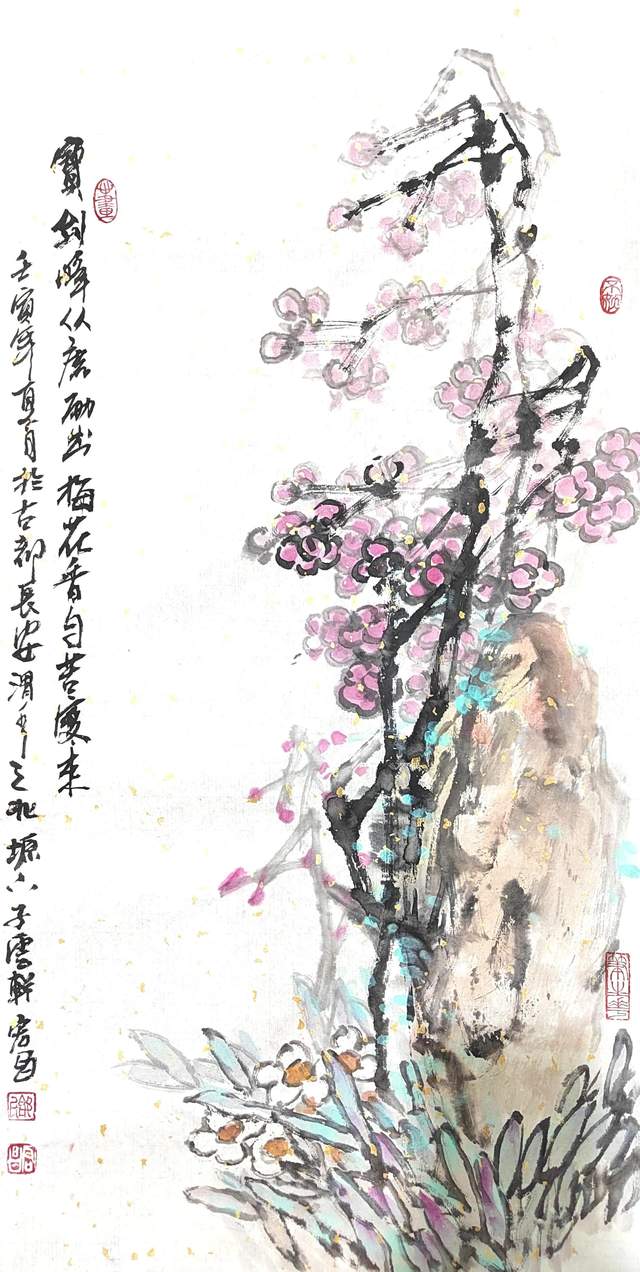 寶剑峰从磨砺出梅花香自苦寒来
壬寅年夏月於古都長安渭水之北塬